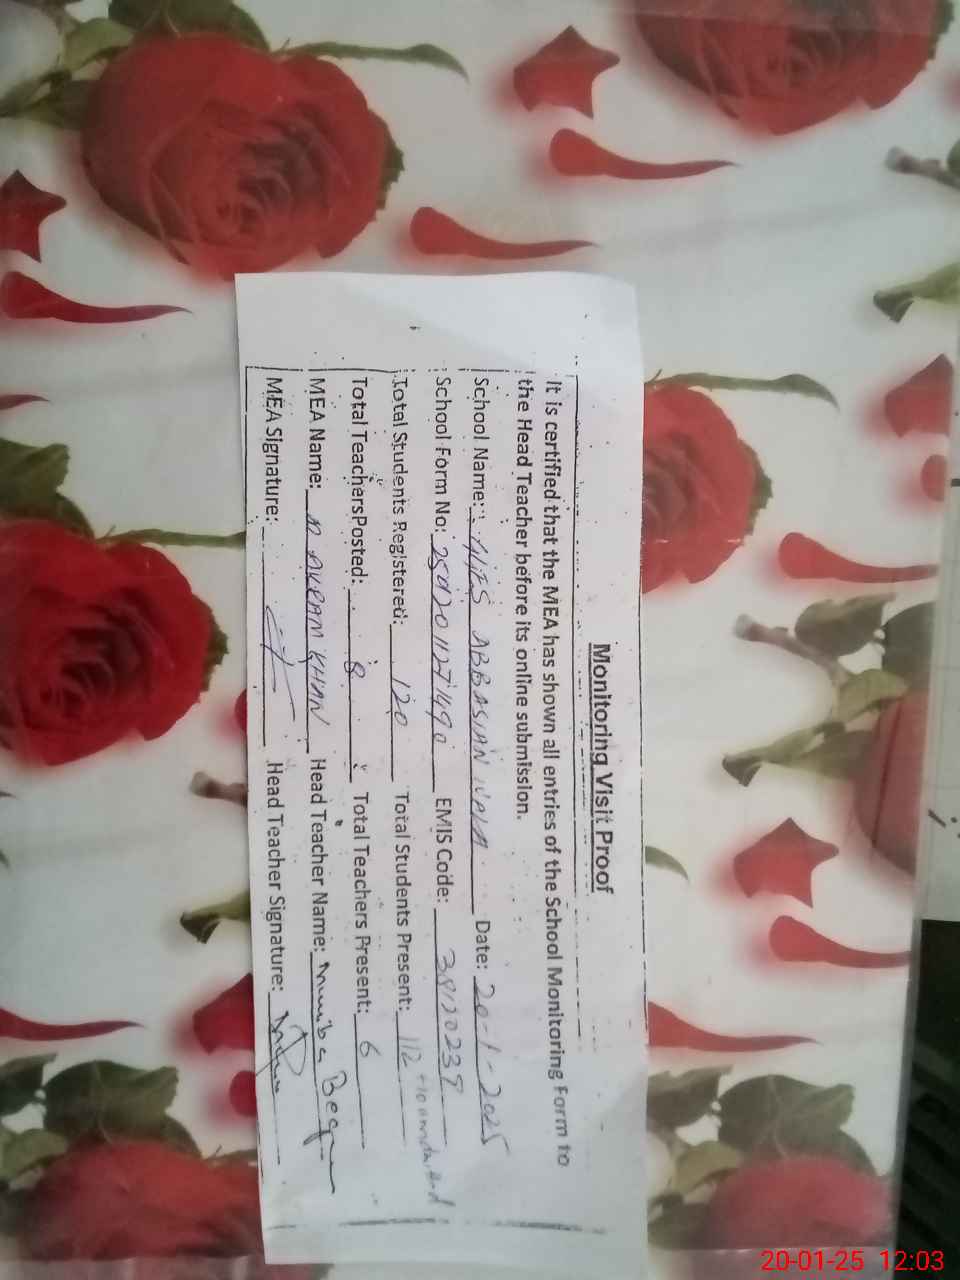 Monitoring Visit Proof
It is certified that the MEA has shown all entries of the School Monitoring Form to
the Head Teacher before its online submission.
School Name: ABBASIAN WALA Date: 20-1-2025
School Form No: EMIS Code:
Total Students Registered: 120 Total Students Present: 112 +10
Total TeachersPosted: 8 Total Teachers Present: 6
MEA Name: AKRAM KHAN Head Teacher Name:
MEA Signature: Head Teacher Signature:
20-01-25 12:03